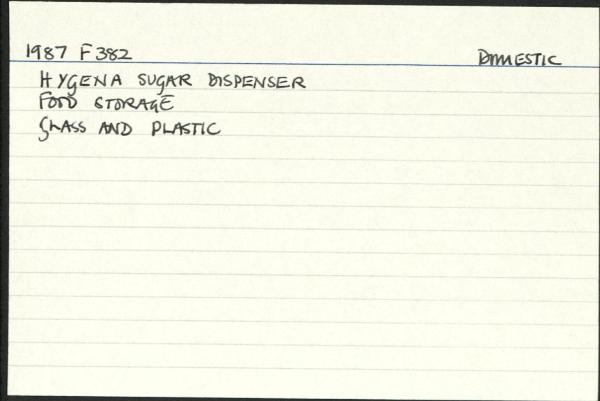 1987 F382 DOMESTIC
HYGENA SUGAR DISPENSER
FOOD STORAGE
GLASS AND PLASTIC